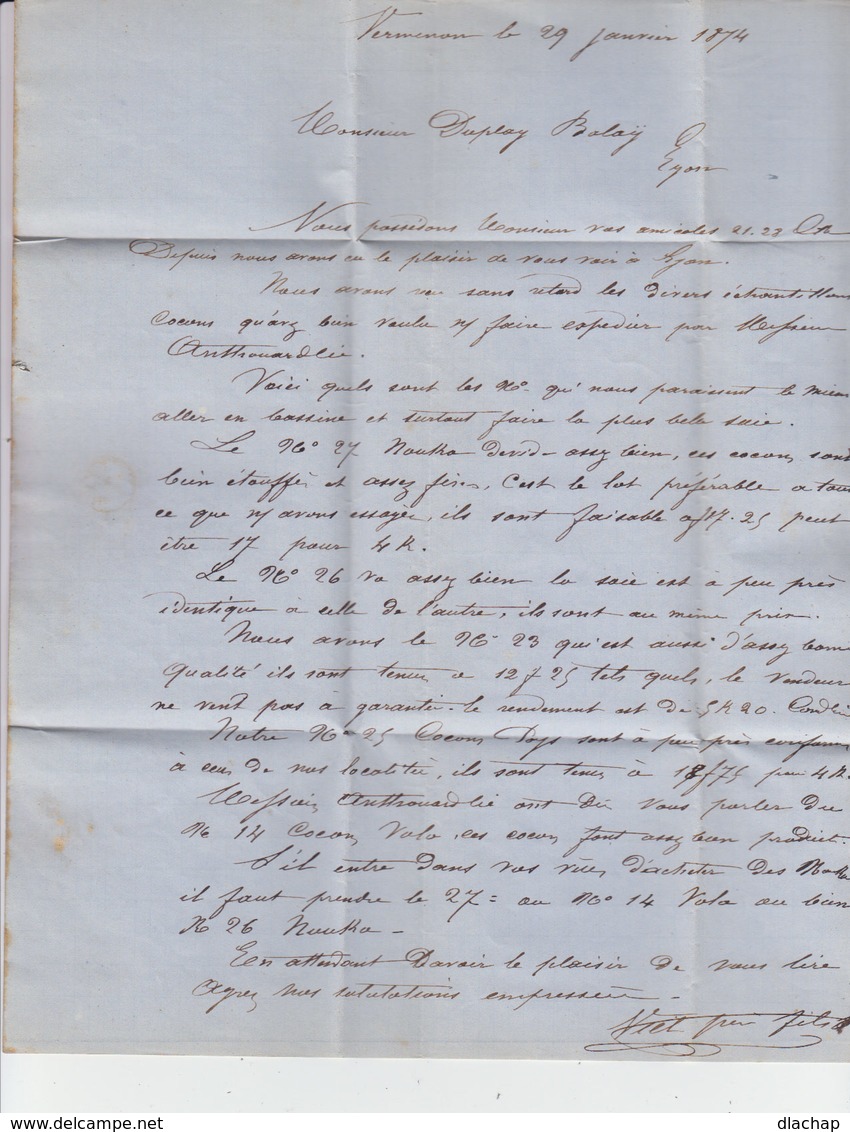 Vermenon le 29 janvier 1874
Monsieur Duplay Balaÿ
Lyon
Nous possédons Monsieur vos amicales 21. 23
Depuis nous avons eu le plaisir de vous voir à Lyon.
Nous avons reçu sans retard les divers échantillons
Cocons qu'avez bien voulu n/ faire expedier par Messieurs
Voiçi quels sont les Nos qui nous paraissent le mieux
aller en bassine et surtout faire la plus belle soie.
Le No 27 Nouka devide assez bien, ces cocons sont
bien étouffés et assez fins, C'est le lot préférable a tout
ce que n/ avons essayer, ils sont faisable a f 17.25 peut
être 17 pour 4 K.
Le No 26 va assez bien la soie est à peu près
identique à celle de l'autre, ils sont au même prix.
Nous avons le No 23 qui est aussi d'assez bonne
qualité ils sont tenus a 12 f 25 tels quels, le vendeur
ne veut pas à garantir le rendement est de 5 K 20.
Notre No 25 Cocons Pays sont à peu près
à ceux de nos localités, ils sont tenus à f 75 pour 4 K.
Messieurs ont du vous parler du
No 14 Cocons Vola, ces cocons font assez bon produit.
S'il entre dans vos vues d'acheter des Nouka
il faut prendre le 27 = ou No 14 Vola ou bien
No 26 Nouka -
En attendant Davoir le plaisir de vous lire
Agrez nos salutations empressées -
père fils
dlachap